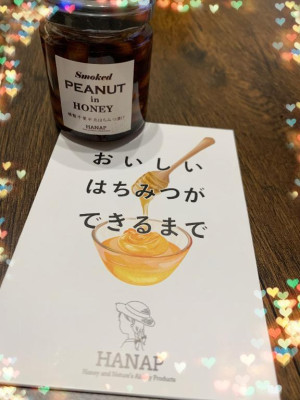 Smoked
PEANUT
in
HONEY
HANAP
おいしい
はちみつが
できるまで
HANAP
Honey and Nature's Products